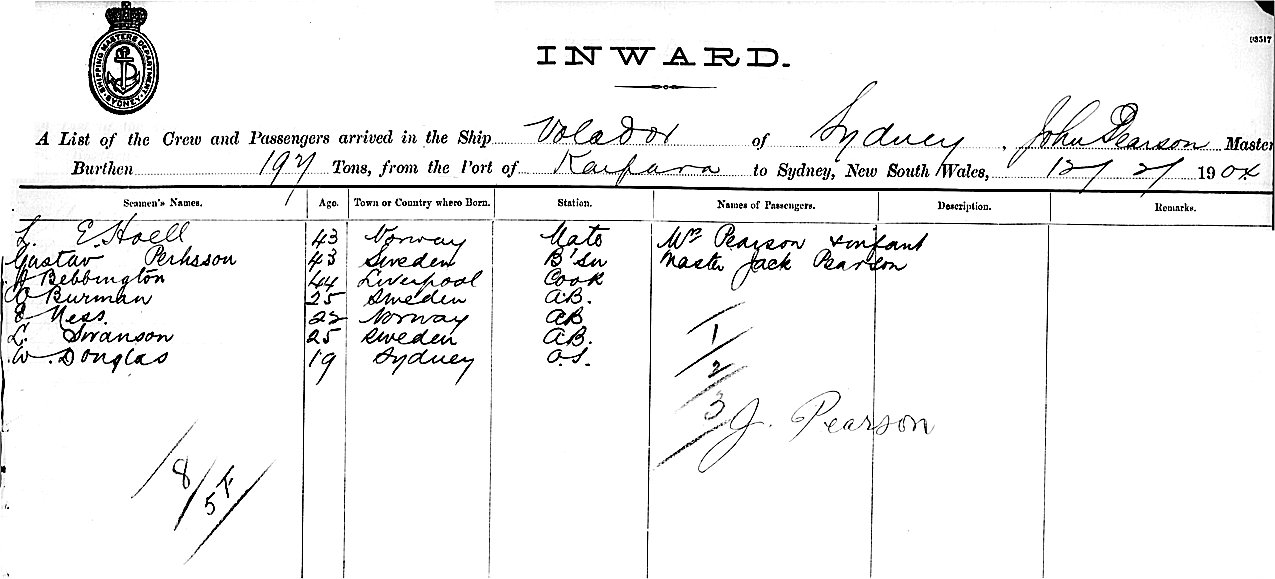 SHIPPING MASTERS DEPARTMENT SYDNEY
INWARD.
A List of the Crew and Passengers arrived in the Ship Volador of Sydney, John Pearson Master
Burthen 197 Tons, from the Port of Kaipara to Sydney, New South Wales, 12/2/ 1904
Seamen's Names. Age. Town or Country where Born. Station. Names of Passengers. Description. Remarks.
L. E. Hoell 43 Norway Mate Mrs Pearson & infant
Gustav Perhsson 43 Sweden B'Sn Master Jack Pearson
Bebbington 44 Liverpool Cook
Burman 25 Sweden A.B.
E Ness. 22 Norway AB
L. Swanson 25 Sweden A.B.
W. Douglas 19 Sydney O.S.
1/2/3
J. Pearson
8/5F